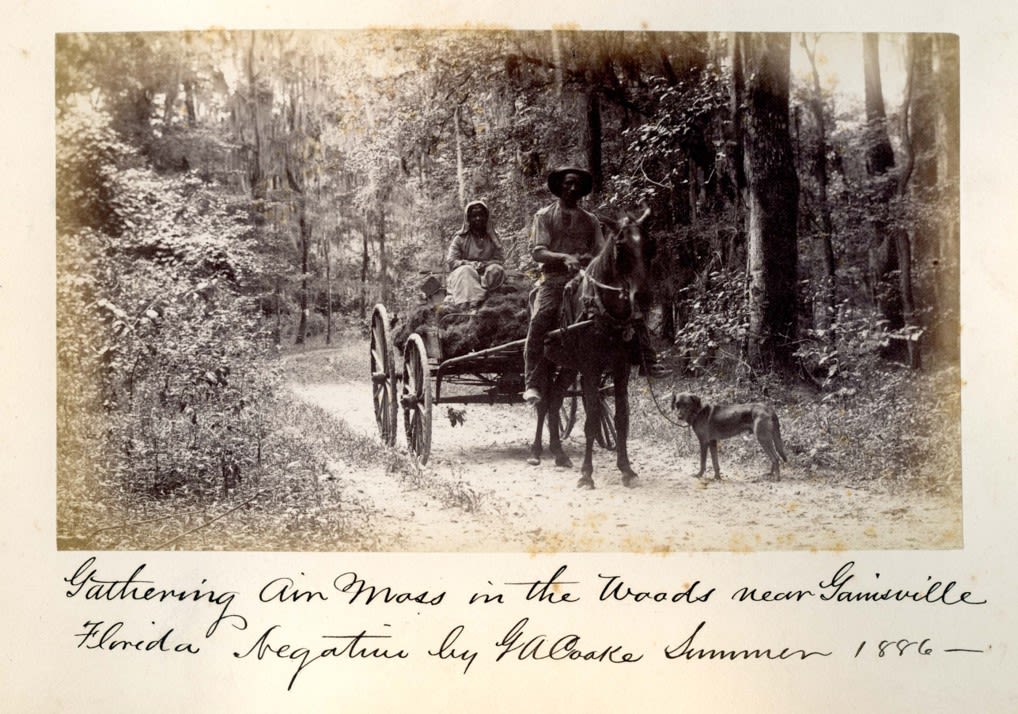 Gathering Air Moss in the Woods near Gainsville
Florida Negative by G A Cooke Summer 1886 —